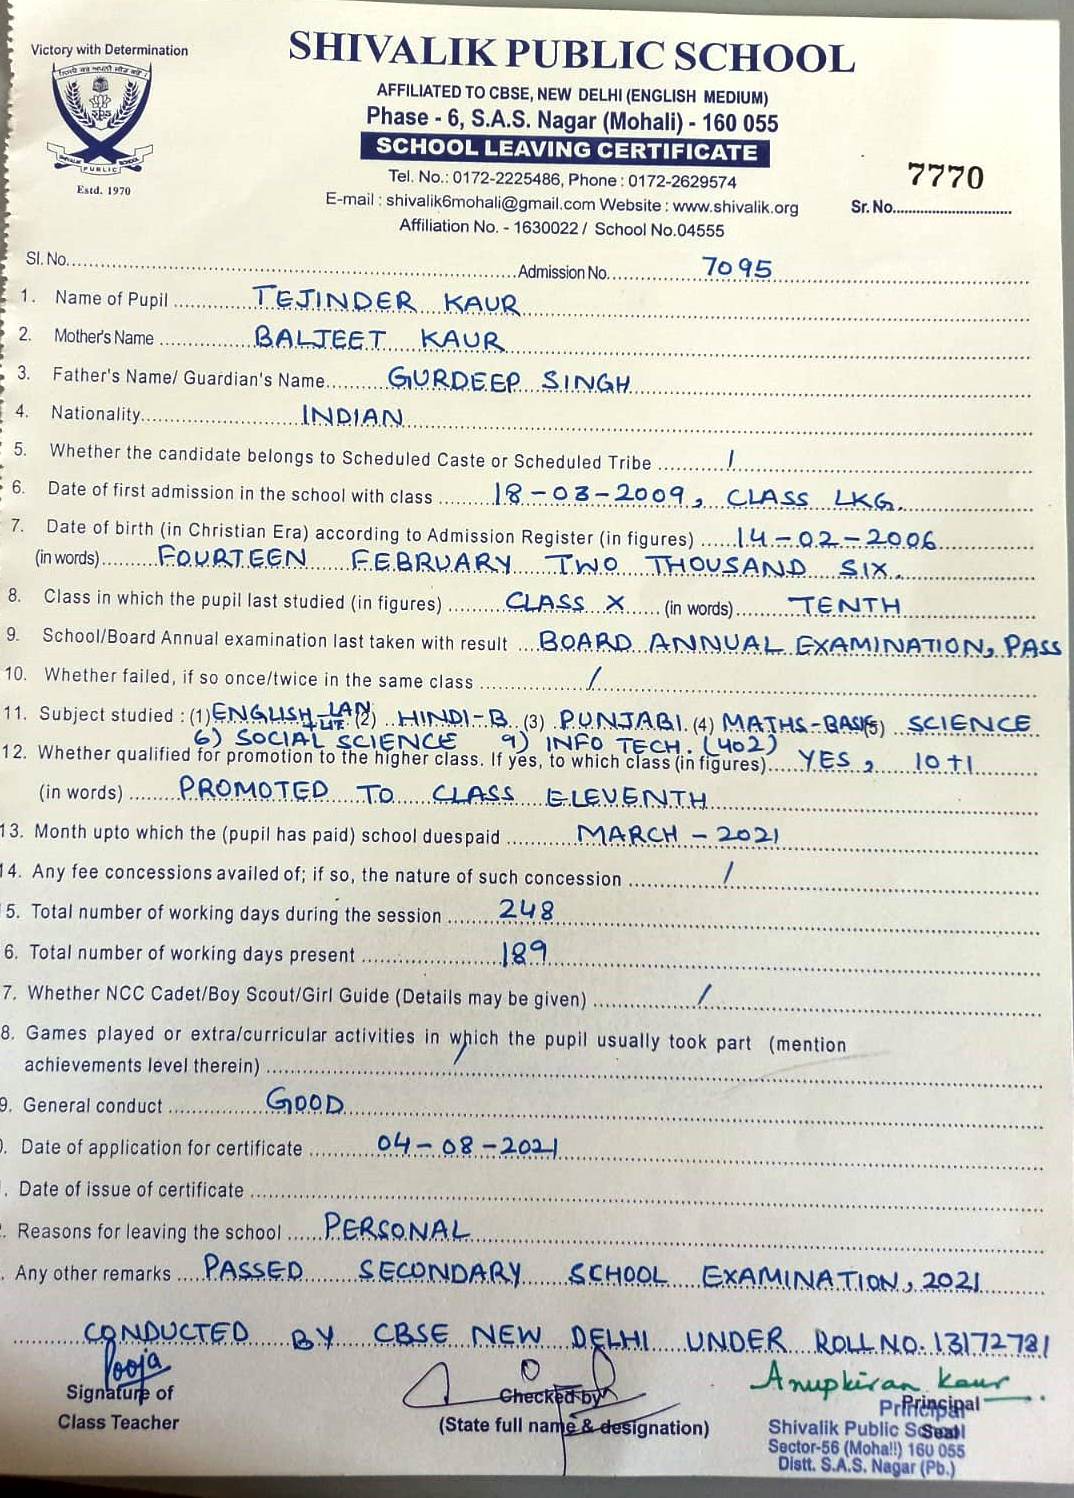 Victory with Determination
SHIVALIK PUBLIC SCHOOL
AFFILIATED TO CBSE, NEW DELHI (ENGLISH MEDIUM)
Phase - 6, S.A.S. Nagar (Mohali) - 160 055
SCHOOL LEAVING CERTIFICATE
SHIVALIK PUBLIC SCHOOL
Estd. 1970
Tel. No.: 0172-2225486, Phone : 0172-2629574
E-mail : shivalik6mohali@gmail.com Website : www.shivalik.org
Affiliation No. - 1630022 / School No.04555
7770
Sr. No.
Sl. No. Admission No. 7095
1. Name of Pupil TEJINDER KAUR
2. Mother's Name BALJEET KAUR
3. Father's Name/ Guardian's Name GURDEEP SINGH
4. Nationality INDIAN
5. Whether the candidate belongs to Scheduled Caste or Scheduled Tribe /
6. Date of first admission in the school with class 18-03-2009, CLASS LKG.
7. Date of birth (in Christian Era) according to Admission Register (in figures) 14-02-2006
(in words) FOURTEEN FEBRUARY TWO THOUSAND SIX.
8. Class in which the pupil last studied (in figures) CLASS X (in words) TENTH
9. School/Board Annual examination last taken with result BOARD ANNUAL EXAMINATION, PASS
10. Whether failed, if so once/twice in the same class /
11. Subject studied : (1) ENGLISH-LAN +LIT (2) HINDI-B (3) PUNJABI (4) MATHS-BASIC (5) SCIENCE
6) SOCIAL SCIENCE 9) INFO TECH. (402)
12. Whether qualified for promotion to the higher class. If yes, to which class (in figures) YES, 10+1
(in words) PROMOTED TO CLASS ELEVENTH
13. Month upto which the (pupil has paid) school duespaid MARCH - 2021
14. Any fee concessions availed of; if so, the nature of such concession /
5. Total number of working days during the session 248
6. Total number of working days present 189
7. Whether NCC Cadet/Boy Scout/Girl Guide (Details may be given) /
8. Games played or extra/curricular activities in which the pupil usually took part (mention
achievements level therein) /
9. General conduct GOOD
). Date of application for certificate 04-08-2021
. Date of issue of certificate
. Reasons for leaving the school PERSONAL
. Any other remarks PASSED SECONDARY SCHOOL EXAMINATION, 2021
CONDUCTED BY CBSE NEW DELHI UNDER ROLL NO. 13172781
Pooja
Signature of
Class Teacher
Checked by
(State full name & designation)
Anupkiran Kaur
Principal
Principal
Seal
Shivalik Public School
Sector-56 (Mohali) 160 055
Distt. S.A.S. Nagar (Pb.)